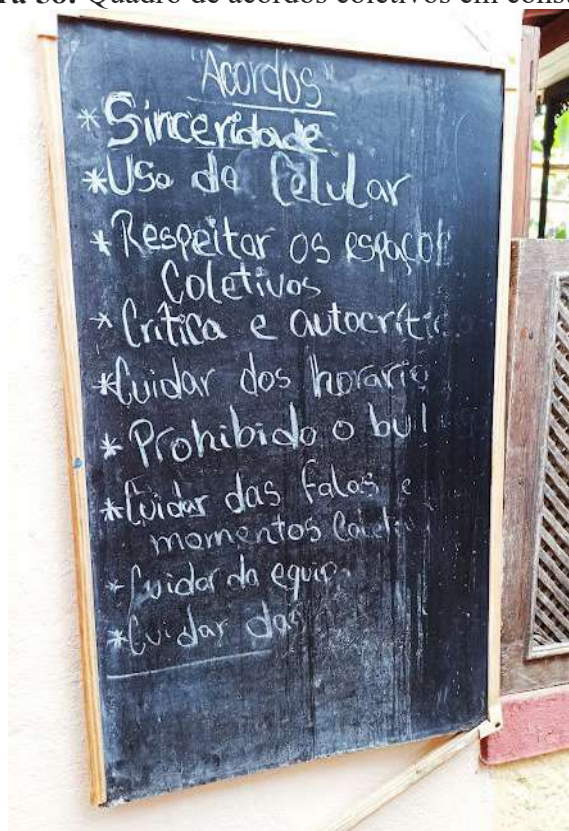 38: Quadro de acordos coletivos em cons
"Acordos"
*Sinceridade
*Uso do Celular
*Respeitar os espaço
Coletivos
*Crítica e autocríti
*Cuidar dos horario
*Prohibido o bul
*Cuidar das falas e
momentos
*Cuidar da equip
*Cuidar das